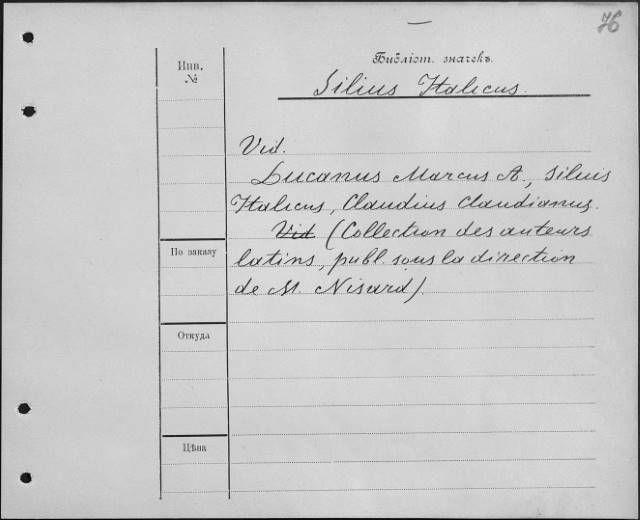 76
Инв.
№
Библіот. значекъ.
Silius Italicus.
Vid.
Lucanus Marcus A., Silius
Italicus, Claudius Claudianus.
Vid (Collection des auteurs
latins, publ. sous la direction
de M. Nisard).
По заказу
Откуда
Цѣна